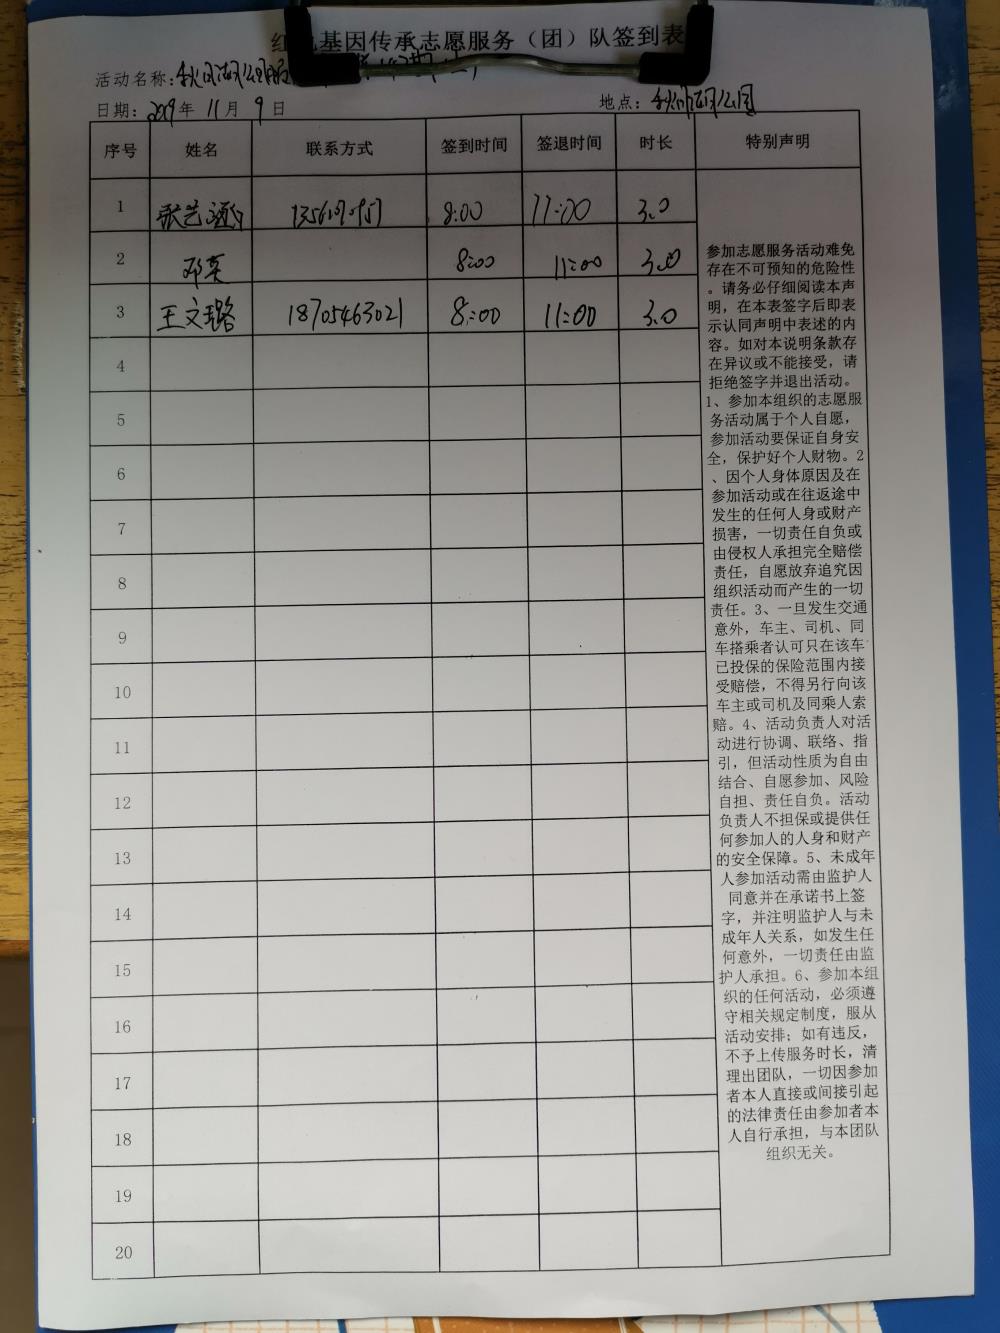 基因传承志愿服务（团）队签到表
活动名称：
日期：2019年 11月 9日 地点：
序号 姓名 联系方式 签到时间 签退时间 时长 特别声明
1 8:00 11:00 3.0
2 邓英 8:00 11:00 3.0
3 王文璐 18705463021 8:00 11:00 3.0
4
5
6
7
8
9
10
11
12
13
14
15
16
17
18
19
20
参加志愿服务活动难免
存在不可预知的危险性
。请务必仔细阅读本声
明，在本表签字后即表
示认同声明中表述的内
容。如对本说明条款存
在异议或不能接受，请
拒绝签字并退出活动。
1、参加本组织的志愿服
务活动属于个人自愿，
参加活动要保证自身安
全，保护好个人财物。2
、因个人身体原因及在
参加活动或在往返途中
发生的任何人身或财产
损害，一切责任自负或
由侵权人承担完全赔偿
责任，自愿放弃追究因
组织活动而产生的一切
责任。3、一旦发生交通
意外，车主、司机、同
车搭乘者认可只在该车
已投保的保险范围内接
受赔偿，不得另行向该
车主或司机及同乘人索
赔。4、活动负责人对活
动进行协调、联络、指
引，但活动性质为自由
结合、自愿参加、风险
自担、责任自负。活动
负责人不担保或提供任
何参加人的人身和财产
的安全保障。5、未成年
人参加活动需由监护人
同意并在承诺书上签
字，并注明监护人与未
成年人关系，如发生任
何意外，一切责任由监
护人承担。6、参加本组
织的任何活动，必须遵
守相关规定制度，服从
活动安排；如有违反，
不予上传服务时长，清
理出团队，一切因参加
者本人直接或间接引起
的法律责任由参加者本
人自行承担，与本团队
组织无关。